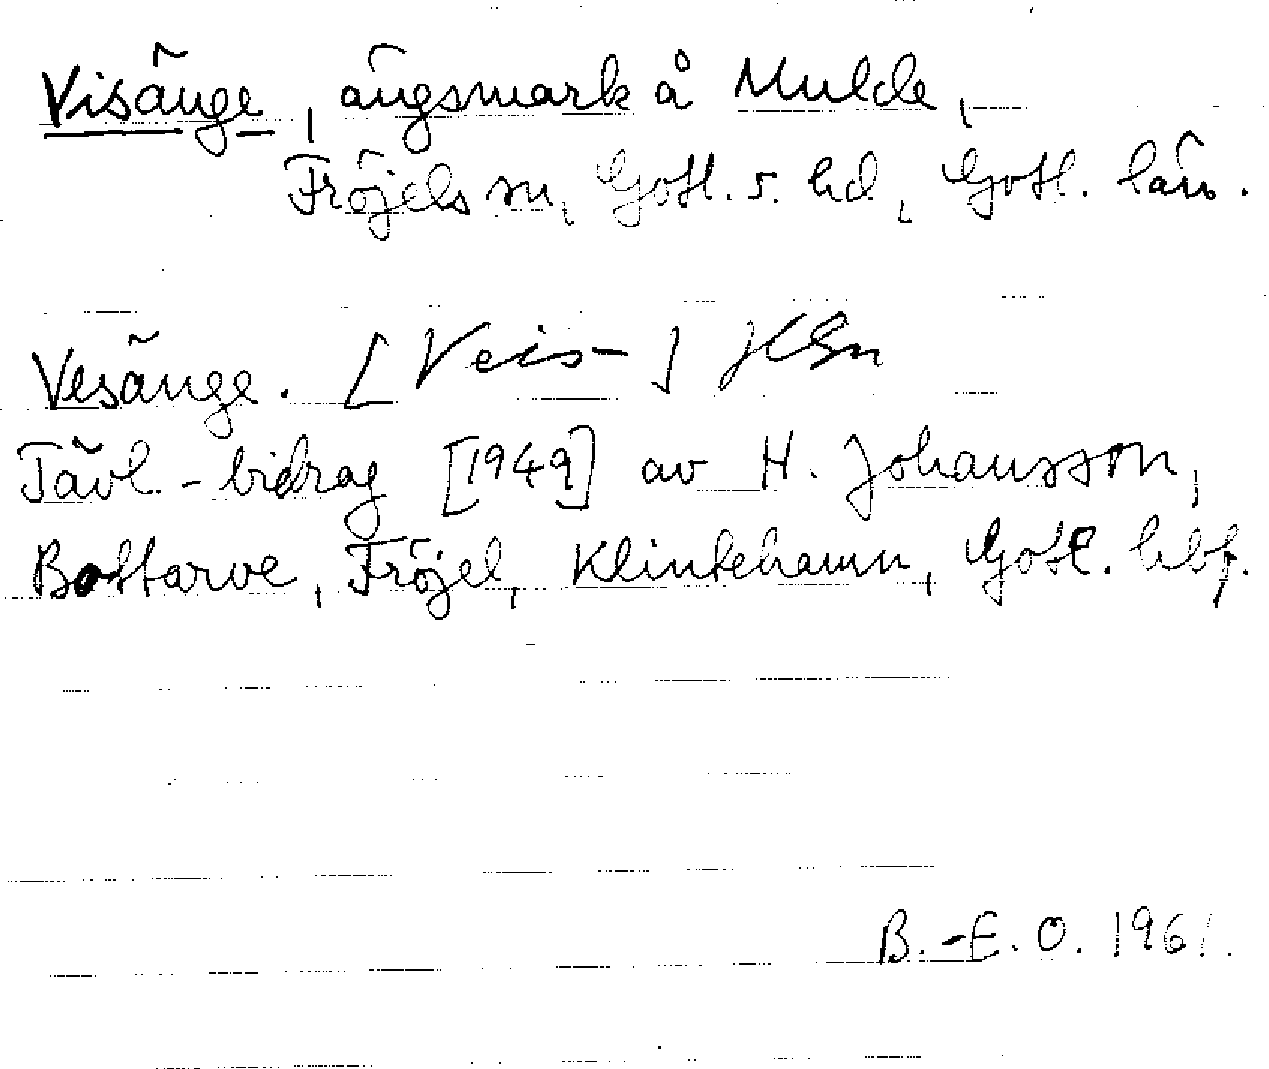 Visänge, ängsmark å Mulde,
Fröjels sn, Gotl. s. hd, Gotl. län.
Vesänge. [Veis-]
Tävl-bidrag [1949] av H. Johansson,
Bottarve, Fröjel, Klintehamn, Gotl. hbf.
B.-E. O. 1961.